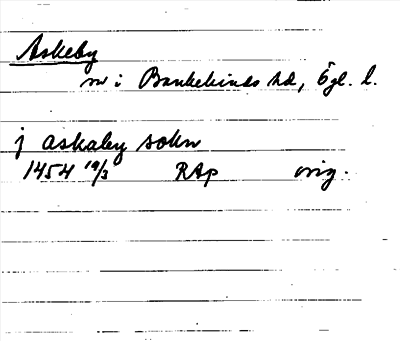 Askeby
sn i Bankekinds hd, Ögl. l.
j askaby sokn
1454 19/3 RAp orig.